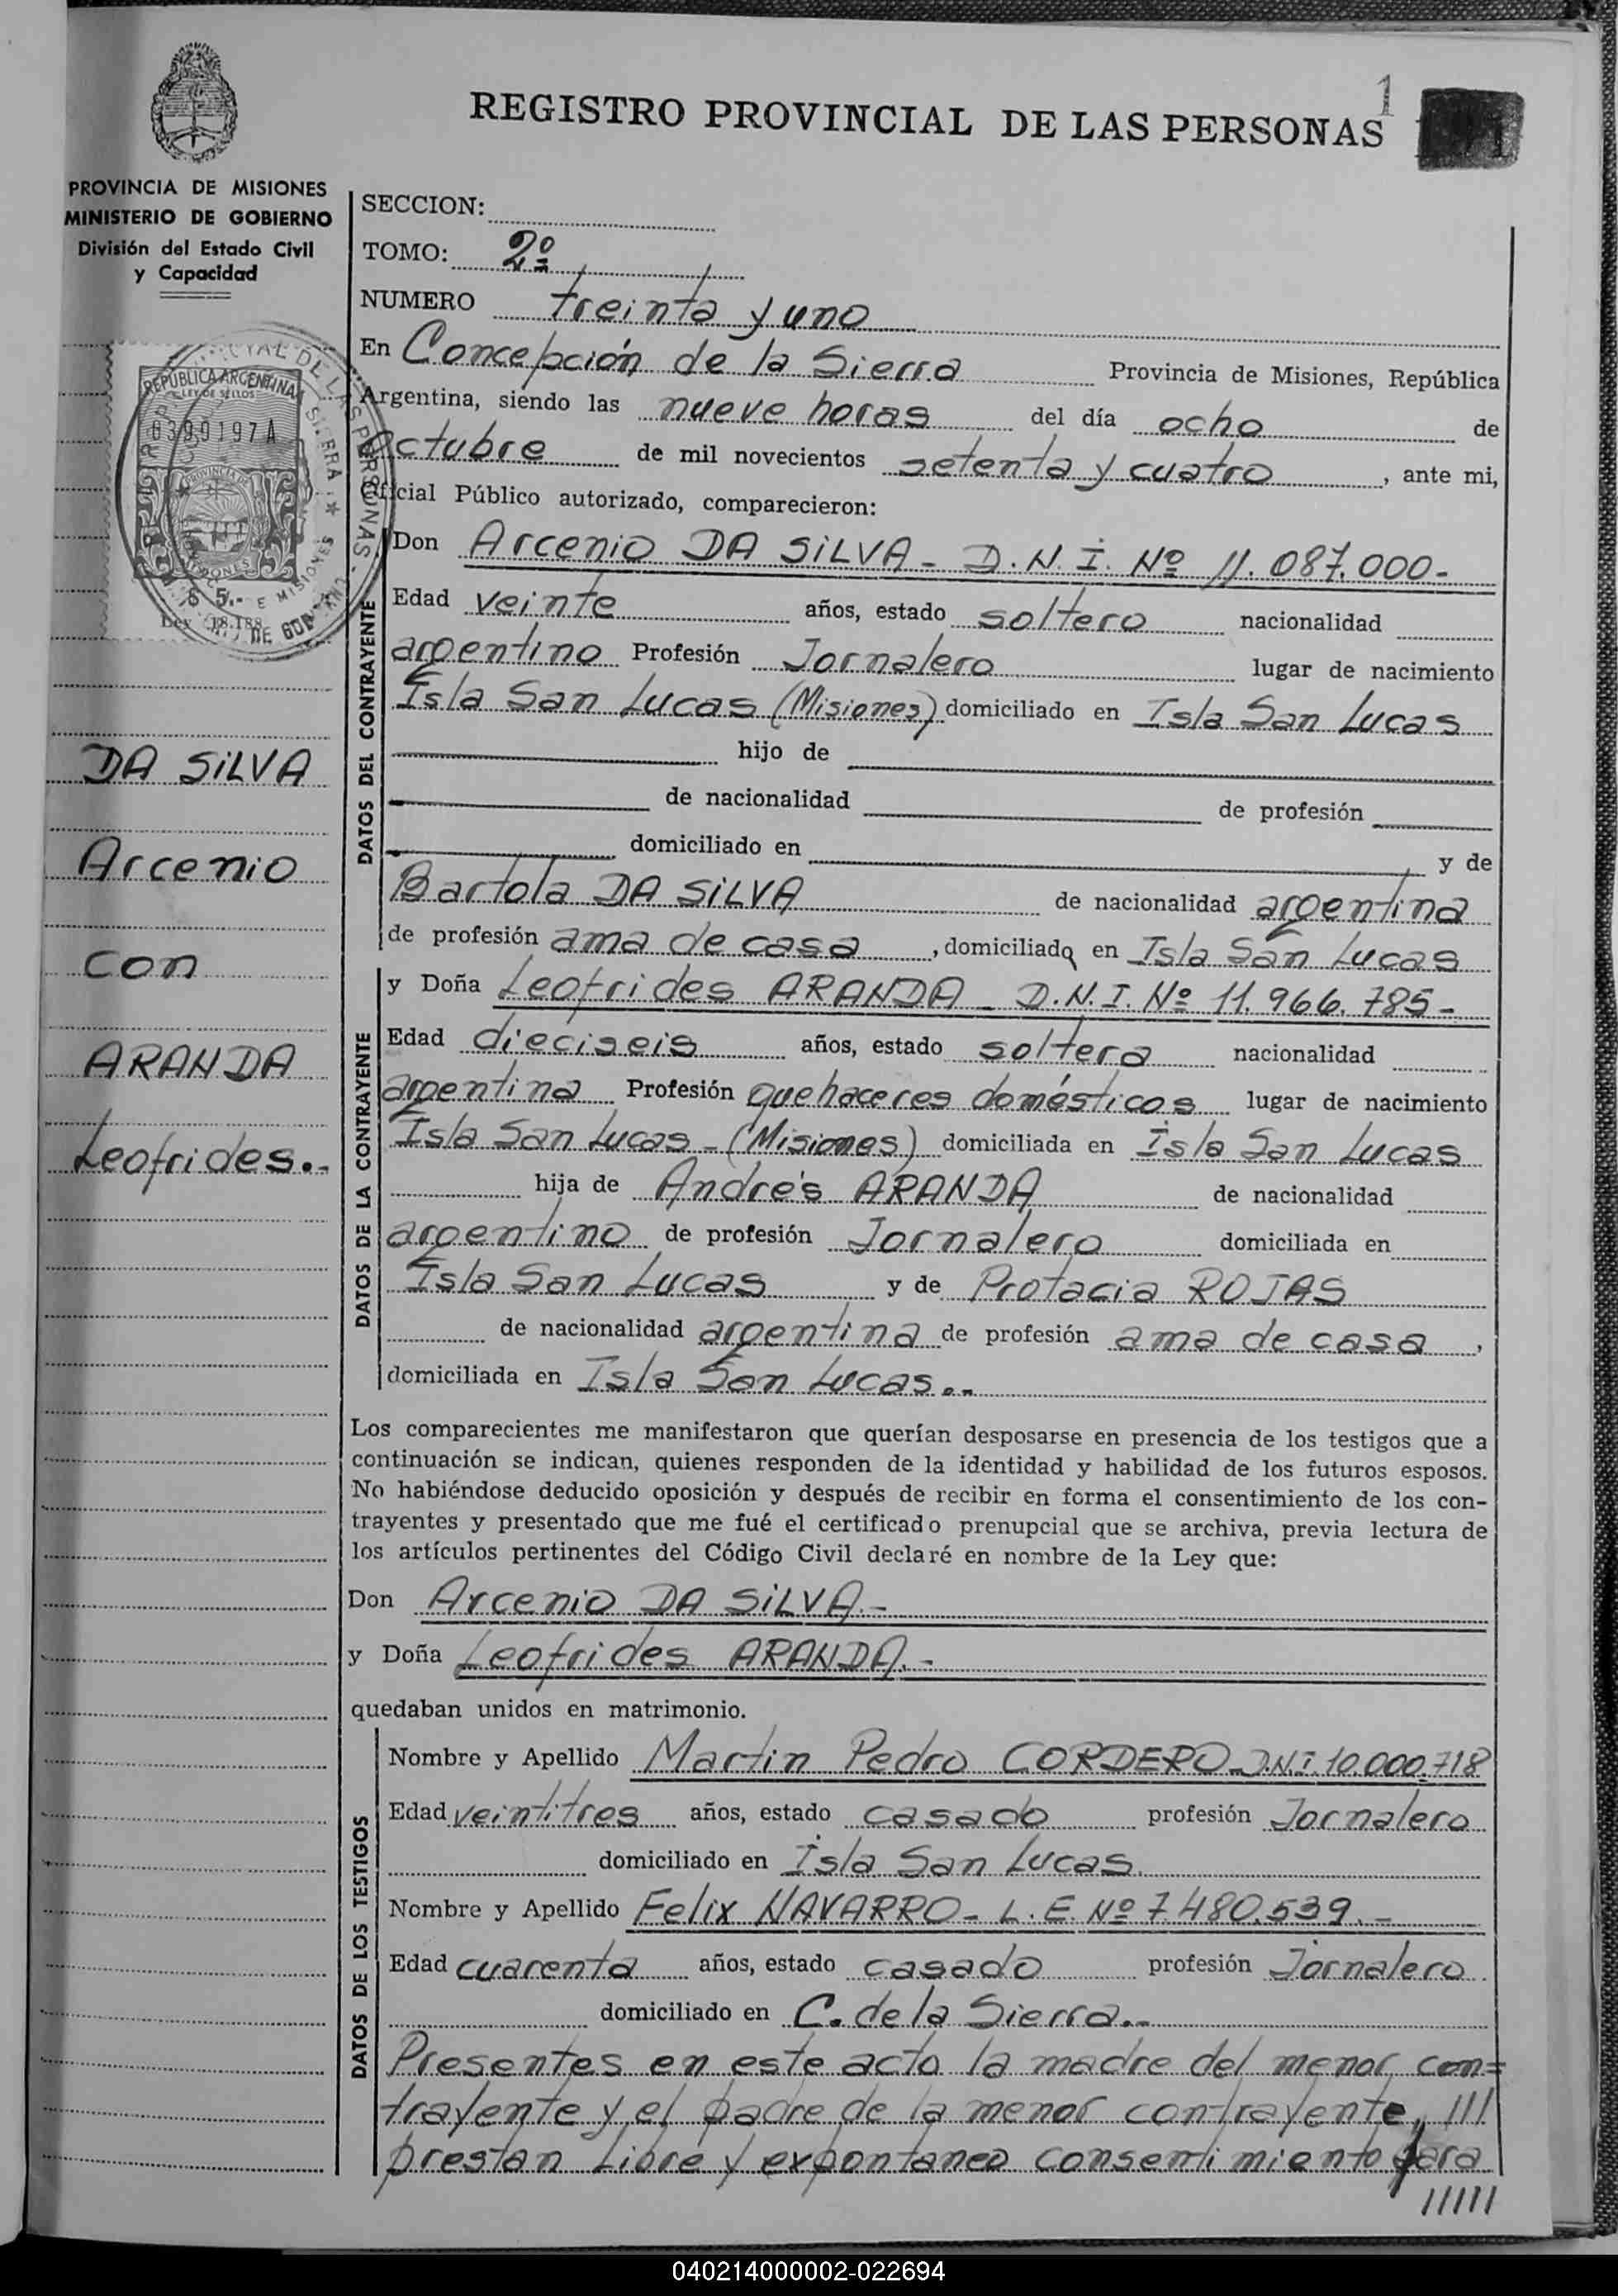 REGISTRO PROVINCIAL DE LAS PERSONAS
1
PROVINCIA DE MISIONES
MINISTERIO DE GOBIERNO
División del Estado Civil
y Capacidad
SECCION:
TOMO: 2º
NUMERO treinta y uno
En Concepción de la Sierra Provincia de Misiones, República
Argentina, siendo las nueve horas del día ocho de
octubre de mil novecientos setenta y cuatro, ante mi,
Oficial Público autorizado, comparecieron:
REPUBLICA ARGENTINA
LEY DE SELLOS
6399197 A
PROVINCIA DE
MISIONES
$ 5.-
Ley 18.188
DATOS DEL CONTRAYENTE
Don Arcenio DA SiLVA - D.N.I. Nº 11.087.000-
Edad veinte años, estado soltero nacionalidad
argentino Profesión Jornalero lugar de nacimiento
Isla San Lucas (Misiones) domiciliado en Isla San Lucas
hijo de
de nacionalidad de profesión
domiciliado en y de
Bartola DA SiLVA de nacionalidad argentina
de profesión ama de casa, domiciliada en Isla San Lucas
DATOS DE LA CONTRAYENTE
y Doña Leofrides ARANDA - D.N.I. Nº 11.966.785-
Edad dieciseis años, estado soltera nacionalidad
argentina Profesión quehaceres domésticos lugar de nacimiento
Isla San Lucas - (Misiones) domiciliada en Isla San Lucas
hija de Andrés ARANDA de nacionalidad
argentino de profesión Jornalero domiciliada en
Isla San Lucas y de Protacia ROJAS
de nacionalidad argentina de profesión ama de casa,
domiciliada en Isla San Lucas.-
DA SiLVA
Arcenio
con
ARANDA
Leofrides.-
Los comparecientes me manifestaron que querían desposarse en presencia de los testigos que a
continuación se indican, quienes responden de la identidad y habilidad de los futuros esposos.
No habiéndose deducido oposición y después de recibir en forma el consentimiento de los con-
trayentes y presentado que me fué el certificado prenupcial que se archiva, previa lectura de
los artículos pertinentes del Código Civil declaré en nombre de la Ley que:
Don Arcenio DA SiLVA.-
y Doña Leofrides ARANDA.-
quedaban unidos en matrimonio.
DATOS DE LOS TESTIGOS
Nombre y Apellido Martin Pedro CORDERO - D.N.I. 10.000.718
Edad veintitres años, estado casado profesión Jornalero
domiciliado en Isla San Lucas.
Nombre y Apellido Felix NAVARRO - L.E. Nº 7.480.539.-
Edad cuarenta años, estado casado profesión Jornalero
domiciliado en C. de la Sierra.-
Presentes en este acto la madre del menor con=
trayente y el padre de la menor contrayente, ///
prestan libre y expontaneo consentimiento para
/////
040214000002-022694